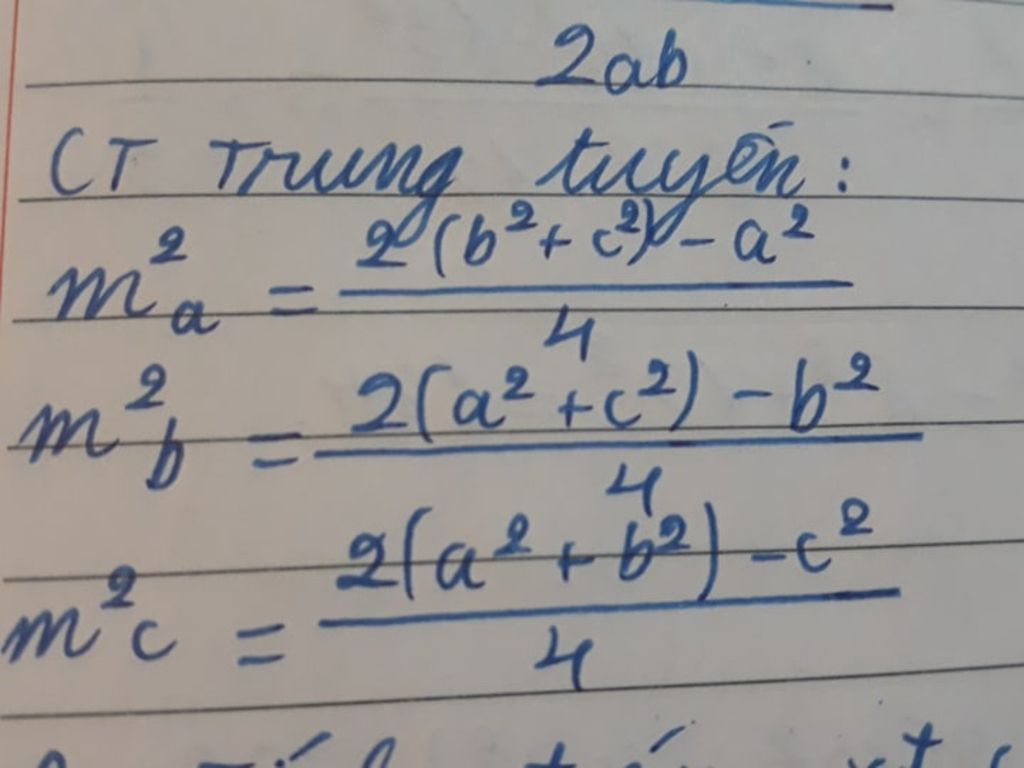 2ab
CT Trung tuyến:
m²a = 2(b²+c²) - a² / 4
m²b = 2(a²+c²) - b² / 4
m²c = 2(a²+b²) - c² / 4